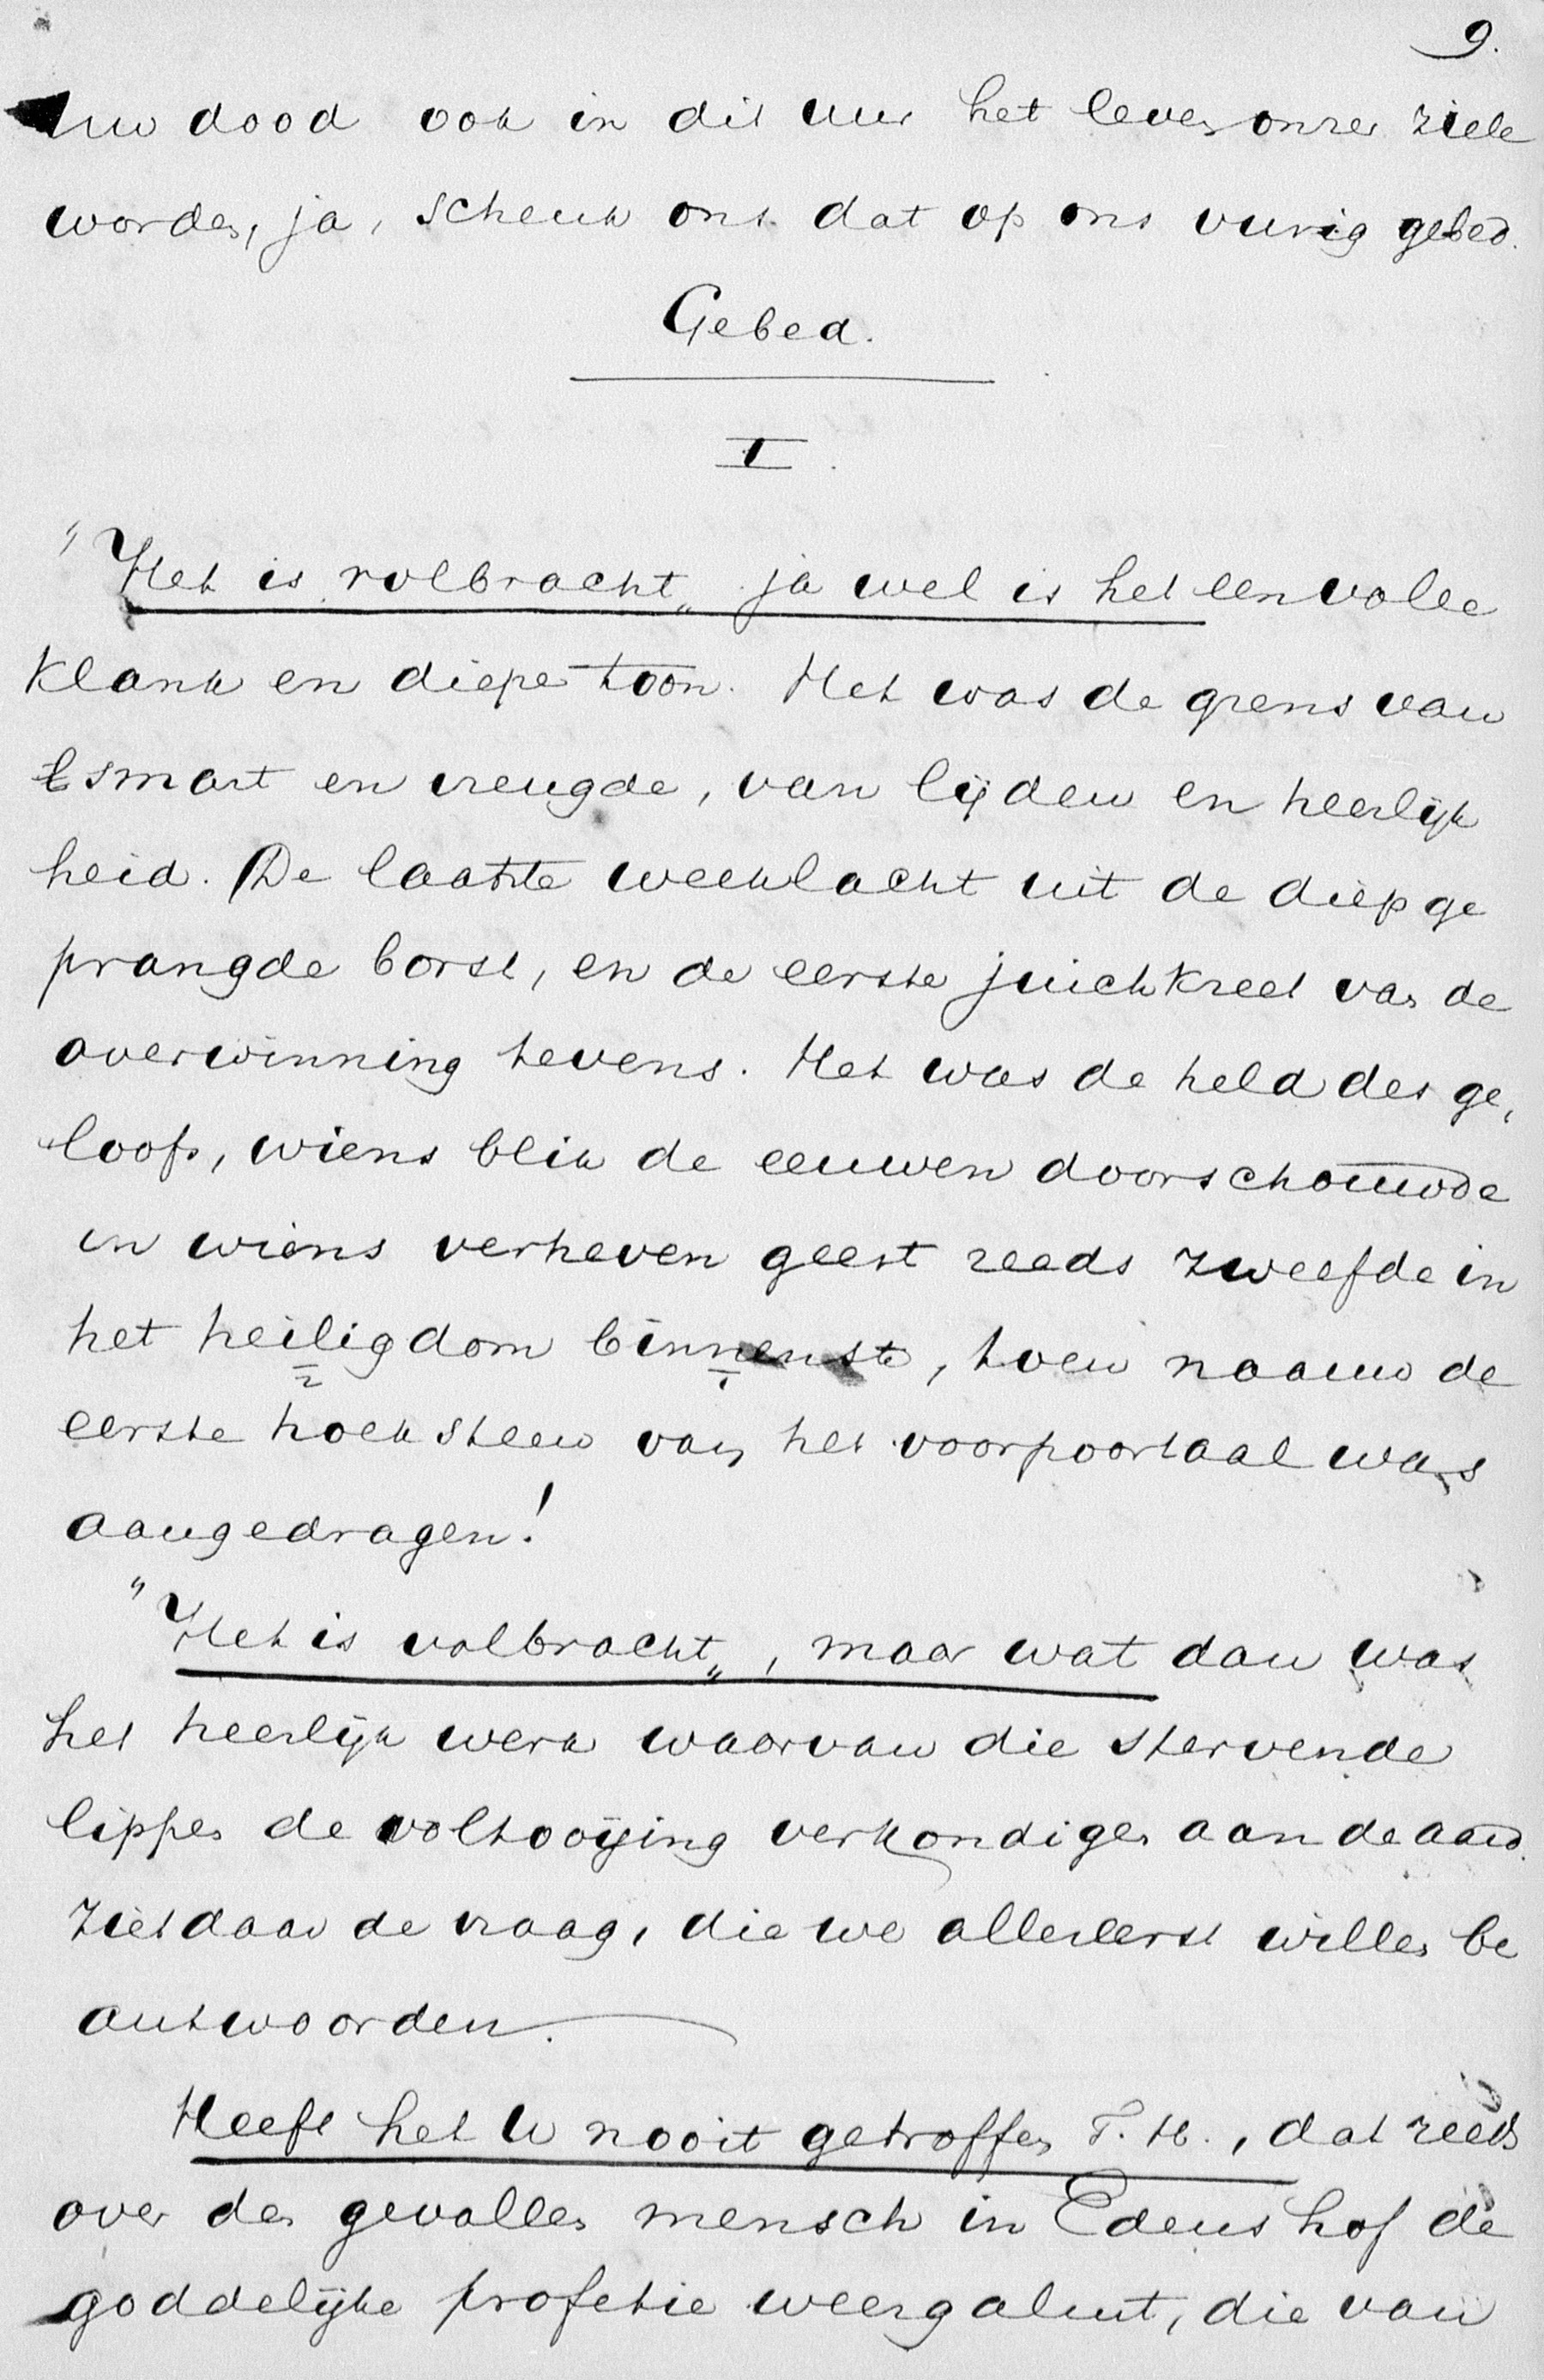 9.
Uw dood ook in dit uur het leven onzer ziele
worden, ja, schenk ons dat op ons vurig gebed.
Gebed.
I.
"Het is volbracht„ ja wel is het een volle
klank en diepe toon. Het was de grens van
smart en vreugde, van lijden en heerlijk
heid. De laatste weeklacht uit de diep ge
prangde borst, en de eerste juichkreet van de
overwinning tevens. Het was de held des ge,
loofs, wiens blik de eeuwen doorschouwde
en wiens verheven geest reeds zweefde in
het heiligdom binnenste, toen naauw de
eerste hoeksteen van het voorpoortaal was
aangedragen!
"Het is volbracht„, maar wat dan was
het heerlijk werk waarvan die stervende
lippen de voltooijing verkondigen aan de aard.
Ziet daar de vraag, die we allereerst willen be
antwoorden.
Heeft het U nooit getroffen T. H., dat reeds
over den gevallen mensch in Edens hof de
goddelijke profetie weergalmt, die van